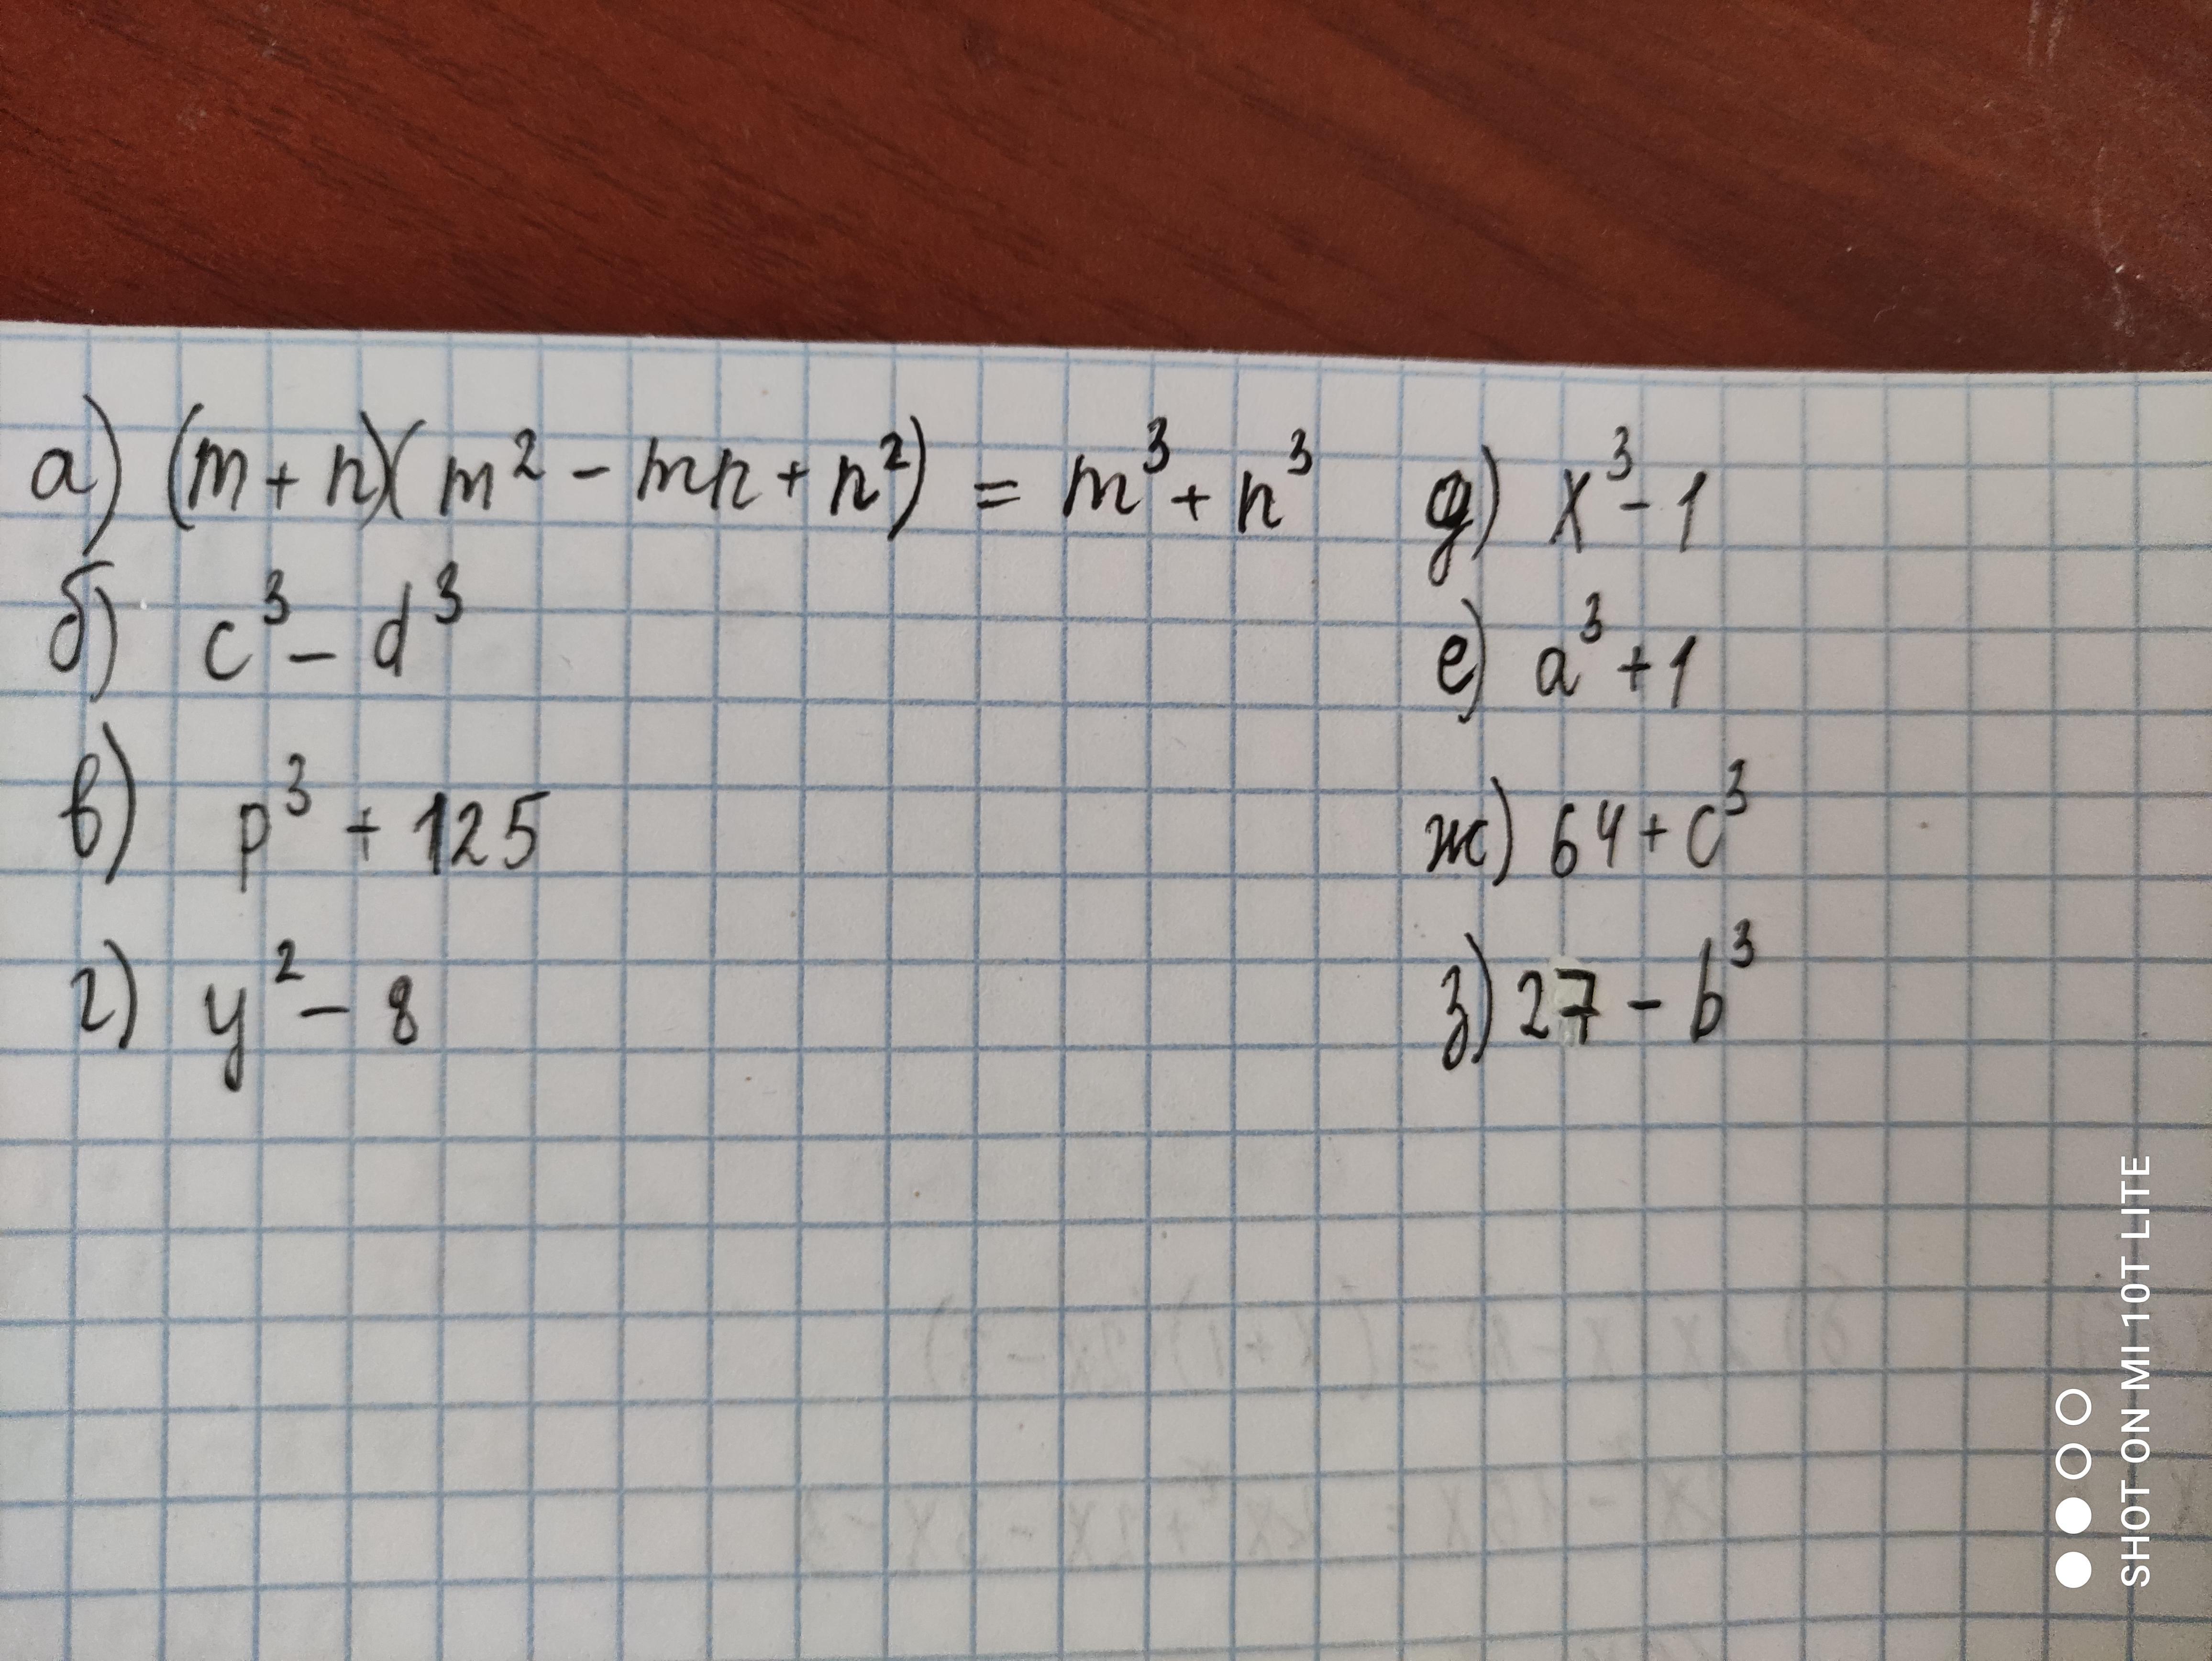 а) (m + n)(m² - mn + n²) = m³ + n³
б) c³ - d³
в) p³ + 125
г) y² - 8
д) x³ - 1
е) a³ + 1
ж) 64 + c³
з) 27 - b³
SHOT ON MI 10T LITE